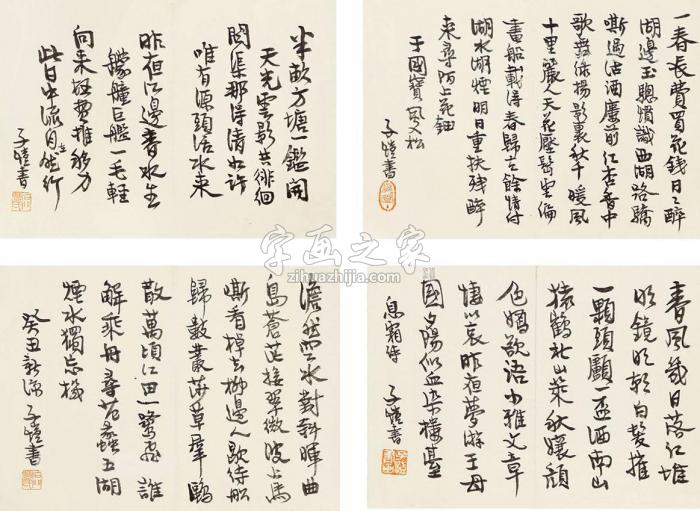 一春長費買花錢日日醉
湖邊玉驄慣識西湖路驕
嘶過沽酒壚前紅杏香中
歌舞綠楊影裏秋千暖風
十里麗人天花壓鬢雲偏
畫船載得春歸去餘情付
湖水湖煙明日重扶殘醉
來尋陌上花鈿
于國寶風入松
子愷書
半畝方塘鑑開
天光雲影共徘徊
問渠那得清如許
唯有源頭活水來
昨夜江邊春水生
艨艟巨艦一毛輕
向來枉費推移力
此日中流自在行
子愷書
春風幾日落紅堆
明鏡明朝白髮摧
一顆頭顱一盃酒南山
猿鶴北山萊秋孃顏
色嬌欲語小雅文章
悽以哀昨夜夢游王母
國夕陽似血染樓臺
息霜詩 子愷書
澹然空水對斜暉曲
島蒼茫接翠微波上馬
嘶看棹去柳邊人歇待船
歸數叢莎草群鷗
散萬頃江田一鷺飛誰
解乘舟尋范蠡五湖
煙水獨忘機
癸丑新 子愷書
字画之家
zihuazhijia.com